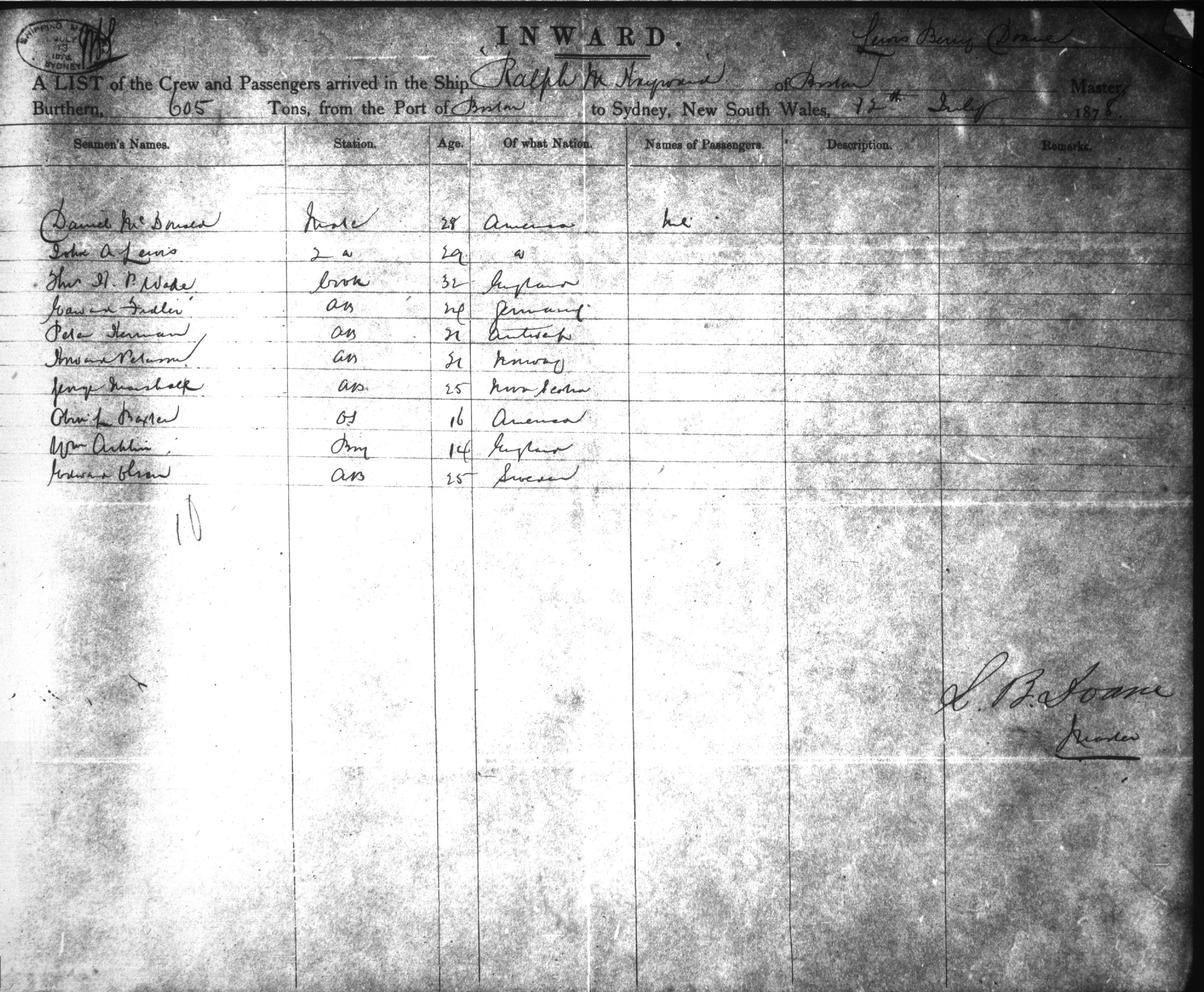 SHIPPING
JUL
1878
SYDNEY
INWARD.
Lewis Berry Doane
A LIST of the Crew and Passengers arrived in the Ship Ralph M Hayward of Boston Master,
Burthern, 605 Tons, from the Port of Boston to Sydney, New South Wales, 12th July 1878.
Seamen's Names. Station. Age. Of what Nation. Names of Passengers. Description. Remarks.
Daniel McDonald Mate 28 America Nil
John A Lewis 2 " 29 "
Thos P Wade Cook 32 England
Edward AB Germany
Peter Herman AB Antwerp
Peterson AB Norway
George Marshall AB 25 Nova Scotia
Baxter OS 16 America
Wm Boy 14 England
Edward Olsen AB 25 Sweden
10
L. B. Doane
Master